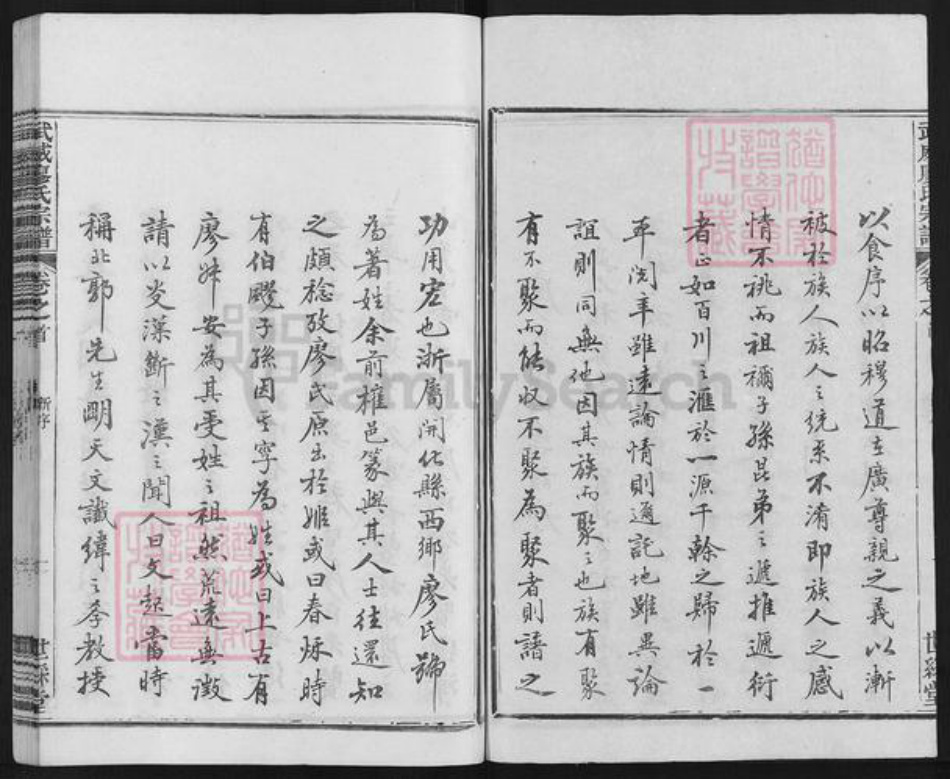 以食序以昭穆道在廣尊親之義以漸
被於族人族人之統系不淆即族人之感
情不祧而祖禰子孫昆弟之遞推遞衍
者正如百川之滙於一源千榦之歸於一
本閱年雖遠論情則通託地雖異論
誼則同無他因其族而聚之也族有聚
有不聚而能收不聚為聚者則譜之
功用宏也浙屬開化縣西鄉廖氏號
為著姓余前權邑篆與其人士往還知
之頗稔攷廖氏原出於姬或曰春秋時
有伯颺子孫因以字為姓或曰上古有
廖叔安為其受姓之祖然荒遠無徵
請以炎漢斷之漢之聞人曰文起當時
稱北郭先生明天文讖緯之學教授
武威廖氏宗譜
卷之首
新序
世綵堂
武威廖氏宗譜
卷之首
世綵堂
FamilySearch